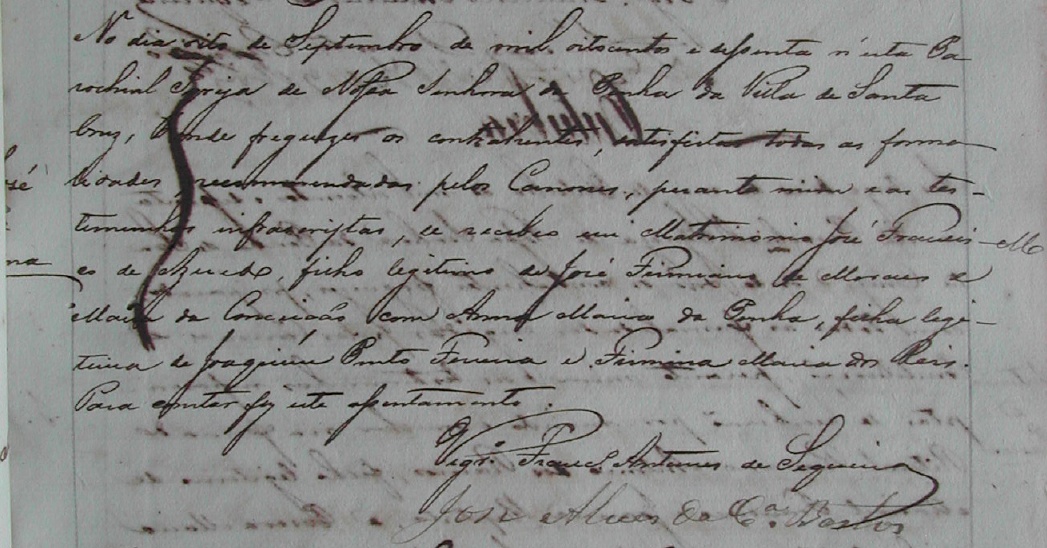 No dia oito de Septembro de mil oitocentos e sessenta n'esta Pa
rochial Igreja de Nossa Senhora da Penha da Villa de Santa
Cruz, d'onde freguezes os contrahentes, satisfeitas todas as forma
lidades recommendadas pelos Canones, perante mim e as tes-
temunhas infrascriptas, se recebeo em Matrimonio José Francis-
co de Azevedo, filho legitimo de José Firmiano de Moraes e
Maria da Conceição com Anna Maria da Penha, filha legi-
tima de Joaquim Pinto Ferreira e Firmina Maria dos Reis.
Para constar fiz este assentamento.
Vigr.º Franc.º Antunes de Sequeira
José Alves da C.ª Bastos